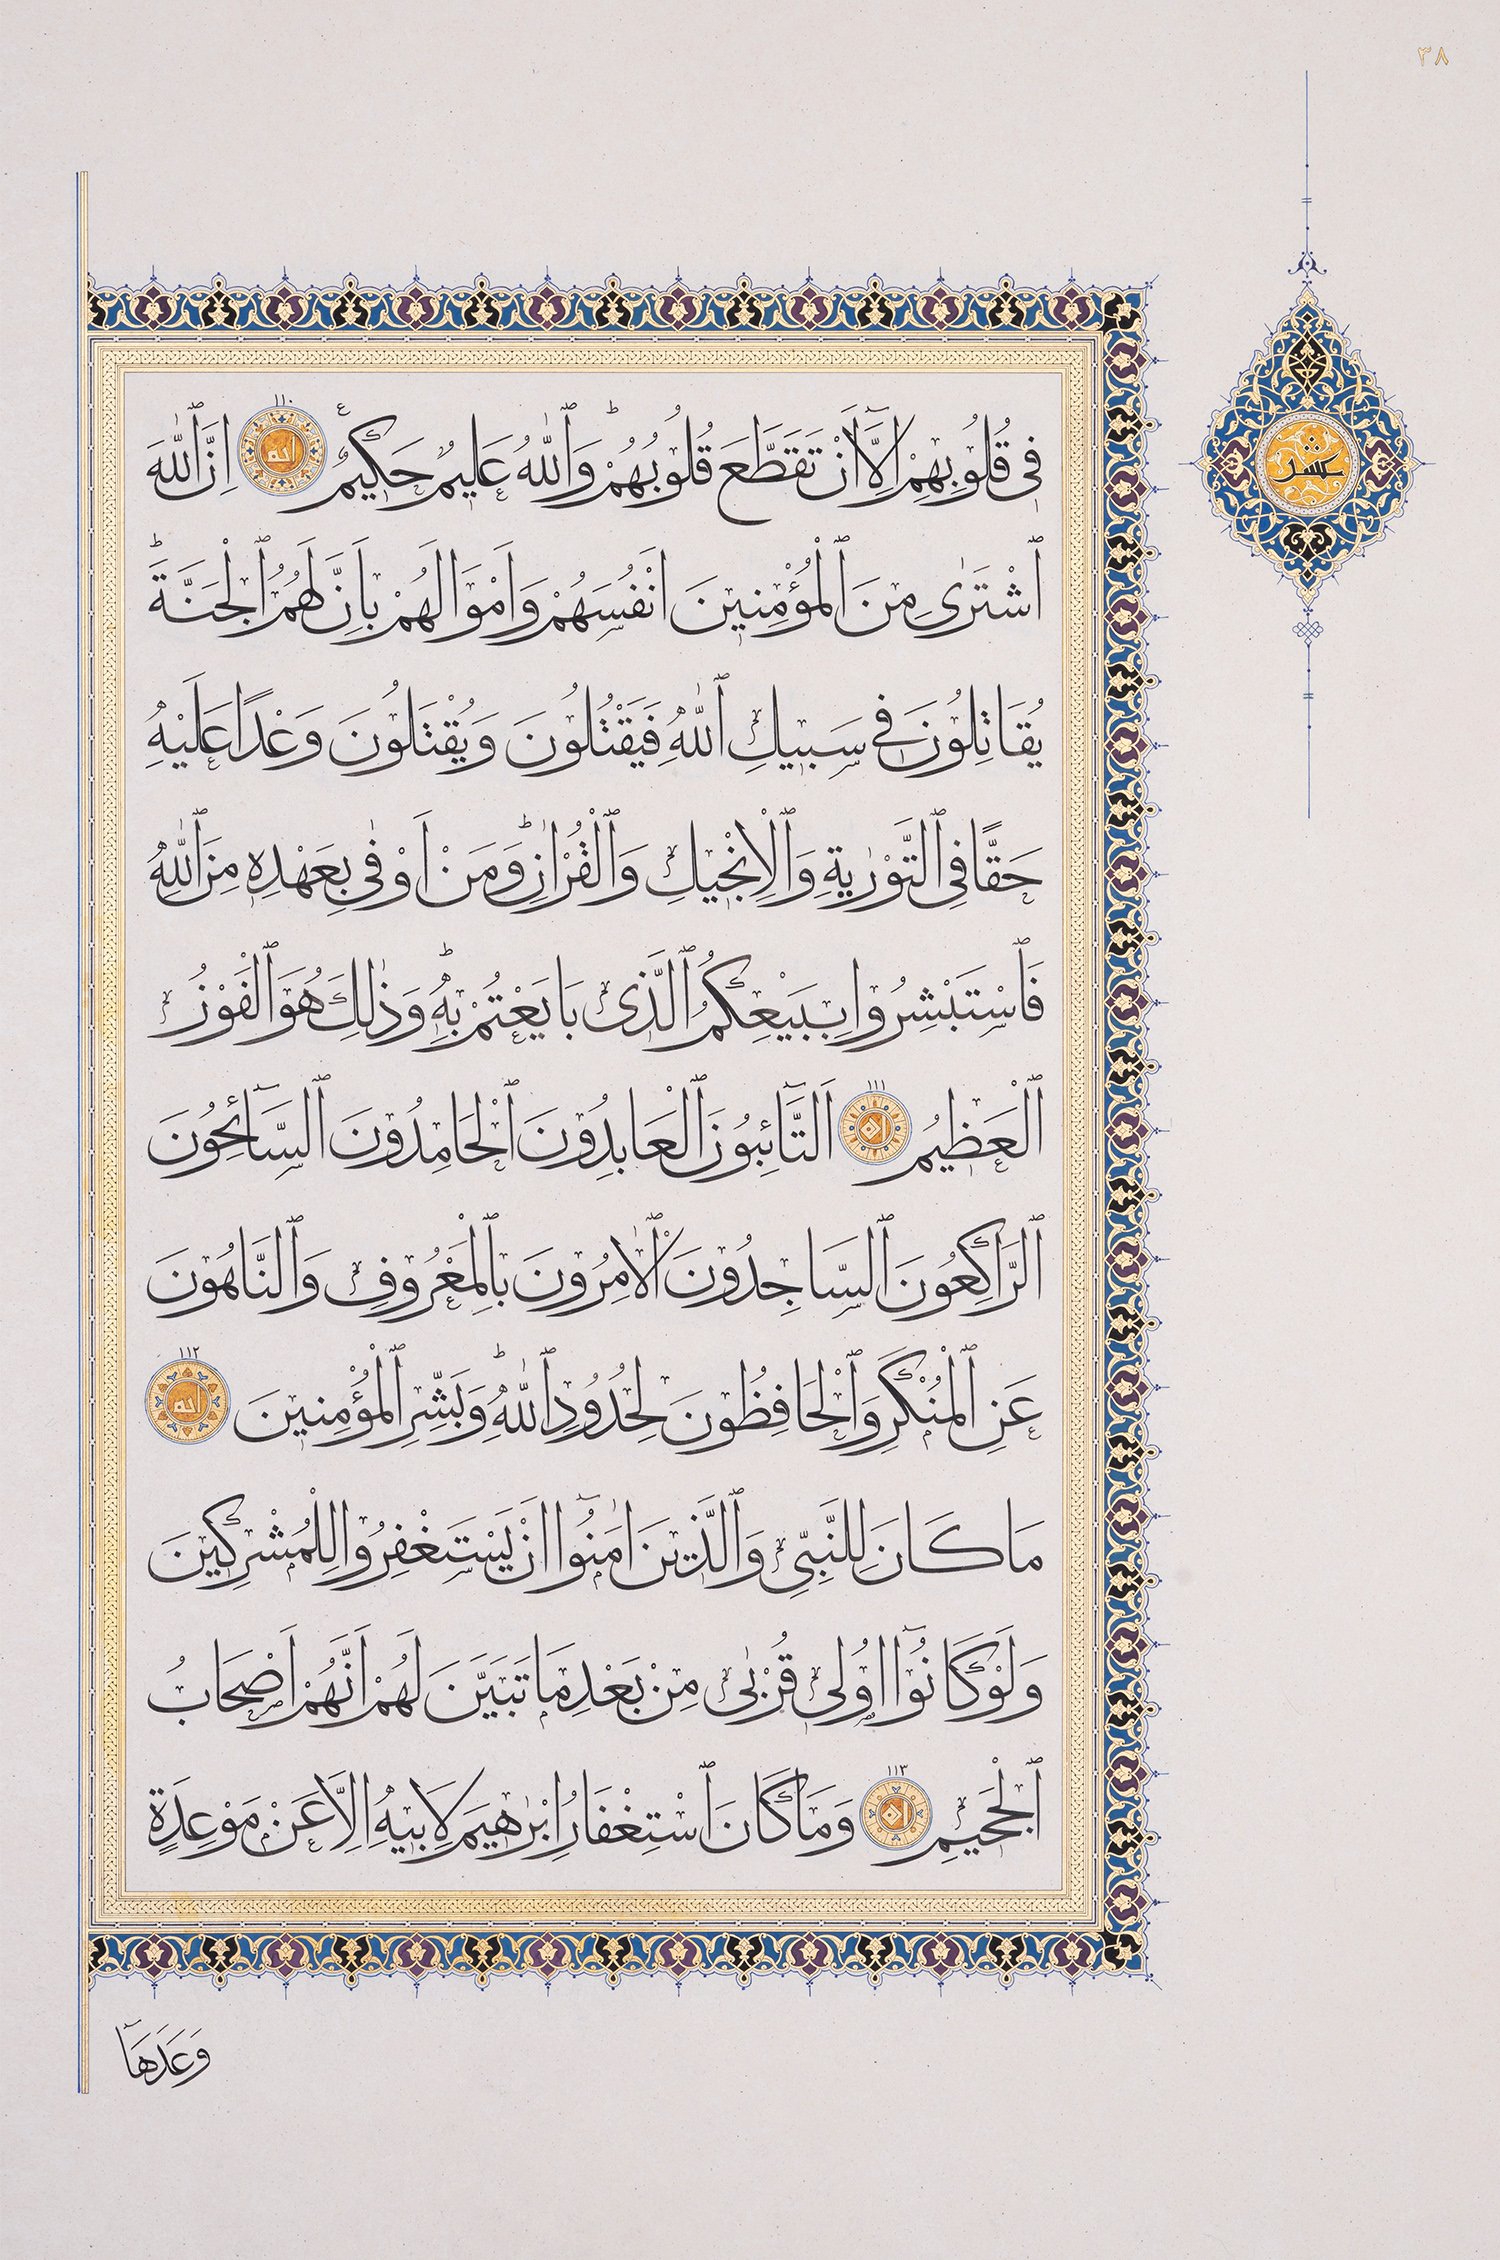 ٣٨
عشر
فِى قُلُوبِهِمْ اِلَّآ اَنْ تَقَطَّعَ قُلُوبُهُمْ وَٱللّٰهُ عَلِيمٌ حَكِيمٌ ١١٠ اِنَّ ٱللّٰهَ
ٱشْتَرٰى مِنَ ٱلْمُؤْمِنِينَ اَنْفُسَهُمْ وَاَمْوَالَهُمْ بِاَنَّ لَهُمُ ٱلْجَنَّةَ
يُقَاتِلُونَ فِى سَبِيلِ ٱللّٰهِ فَيَقْتُلُونَ وَيُقْتَلُونَ وَعْدًا عَلَيْهِ
حَقًّا فِى ٱلتَّوْرٰيةِ وَٱلْاِنْجِيلِ وَٱلْقُرْاٰنِ وَمَنْ اَوْفٰى بِعَهْدِهِ مِنَ ٱللّٰهِ
فَٱسْتَبْشِرُوا بِبَيْعِكُمُ ٱلَّذِى بَايَعْتُمْ بِهِ وَذٰلِكَ هُوَ ٱلْفَوْزُ
ٱلْعَظِيمُ ١١١ اَلتَّآئِبُونَ ٱلْعَابِدُونَ ٱلْحَامِدُونَ ٱلسَّآئِحُونَ
ٱلرَّاكِعُونَ ٱلسَّاجِدُونَ ٱلْاٰمِرُونَ بِٱلْمَعْرُوفِ وَٱلنَّاهُونَ
عَنِ ٱلْمُنْكَرِ وَٱلْحَافِظُونَ لِحُدُودِ ٱللّٰهِ وَبَشِّرِ ٱلْمُؤْمِنِينَ ١١٢
مَا كَانَ لِلنَّبِىِّ وَٱلَّذِينَ اٰمَنُوٓا اَنْ يَسْتَغْفِرُوا لِلْمُشْرِكِينَ
وَلَوْ كَانُوٓا اُولِى قُرْبٰى مِنْ بَعْدِ مَا تَبَيَّنَ لَهُمْ اَنَّهُمْ اَصْحَابُ
ٱلْجَحِيمِ ١١٣ وَمَا كَانَ ٱسْتِغْفَارُ اِبْرٰهِيمَ لِاَبِيهِ اِلَّا عَنْ مَوْعِدَةٍ
وَعَدَهَآ